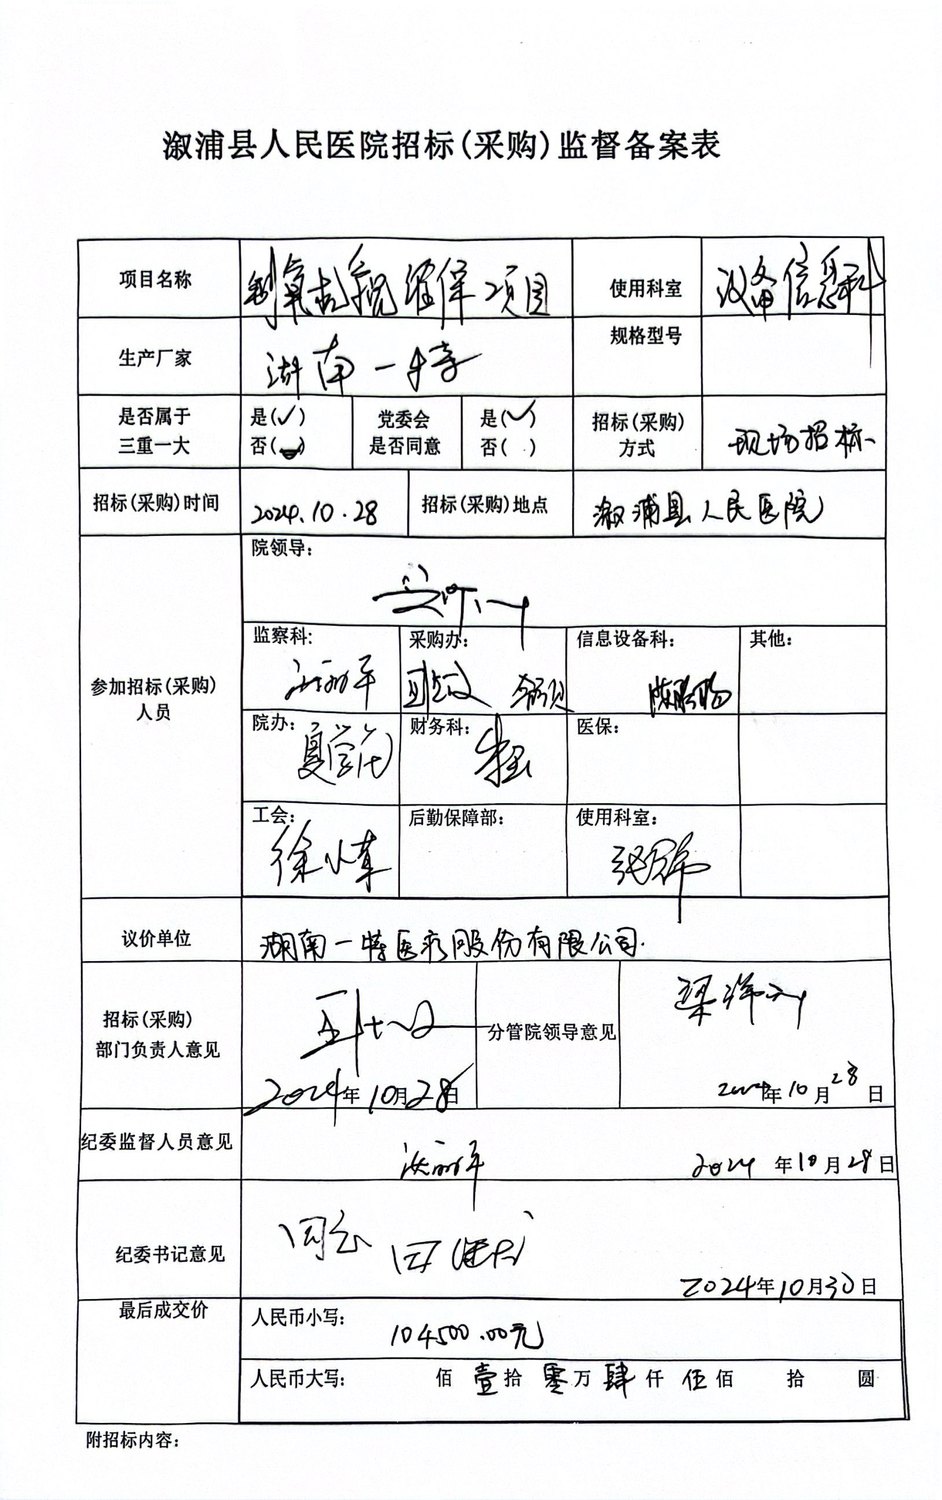 溆浦县人民医院招标(采购)监督备案表
项目名称 制氧机系统维保项目 使用科室 设备信息科
生产厂家 湖南一特 规格型号
是否属于三重一大 是(✓) 否( ) 党委会是否同意 是(✓) 否( ) 招标(采购)方式 现场招标
招标(采购)时间 2024.10.28 招标(采购)地点 溆浦县人民医院
参加招标(采购)人员
院领导:
监察科: 采购办: 信息设备科: 其他:
院办: 财务科: 医保:
工会: 后勤保障部: 使用科室:
议价单位 湖南一特医疗股份有限公司.
招标(采购)部门负责人意见 2024年10月28日 分管院领导意见 2024年10月28日
纪委监督人员意见 2024年10月28日
纪委书记意见 同意 2024年10月30日
最后成交价 人民币小写: 104500.00元
人民币大写: 佰壹拾零万肆仟伍佰 拾 圆
附招标内容: